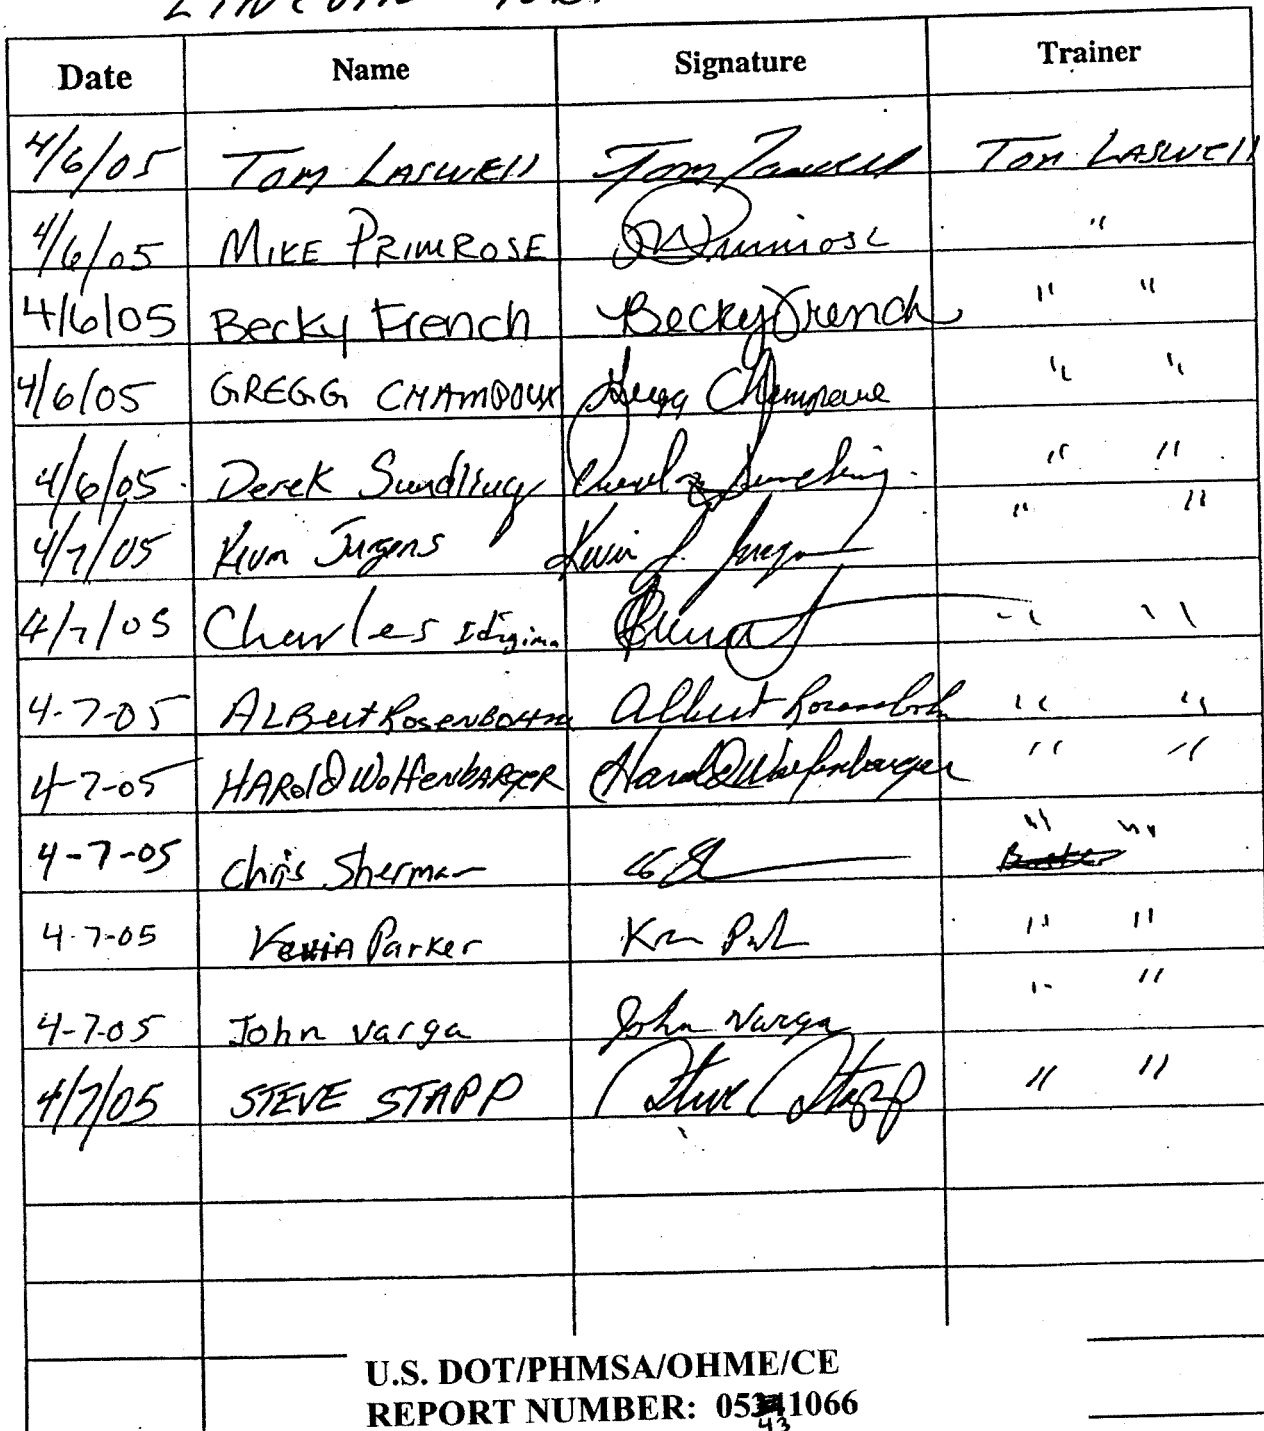 LINCOLN
Date Name Signature Trainer
4/6/05 TOM LASWELL Tom Laswell TOM LASWELL
4/6/05 MIKE PRIMROSE Primrose "
4/6/05 Becky French Becky French " "
4/6/05 GREGG CHAMPOUX Gregg " "
4/6/05 Derek Sundling " "
4/7/05 Jurgens Kevin J. " "
4/7/05 Charles " "
4-7-05 ALBERT ROSENBOHM Albert Rosenbohm " "
4-7-05 HAROLD WOLFENBARGER Harold Wolfenbarger " "
4-7-05 Chris Sherman " "
4-7-05 Kevin Parker " "
4-7-05 John Varga John Varga " "
4/7/05 STEVE STAPP Steve Stapp " "
U.S. DOT/PHMSA/OHME/CE
REPORT NUMBER: 05 1066
43